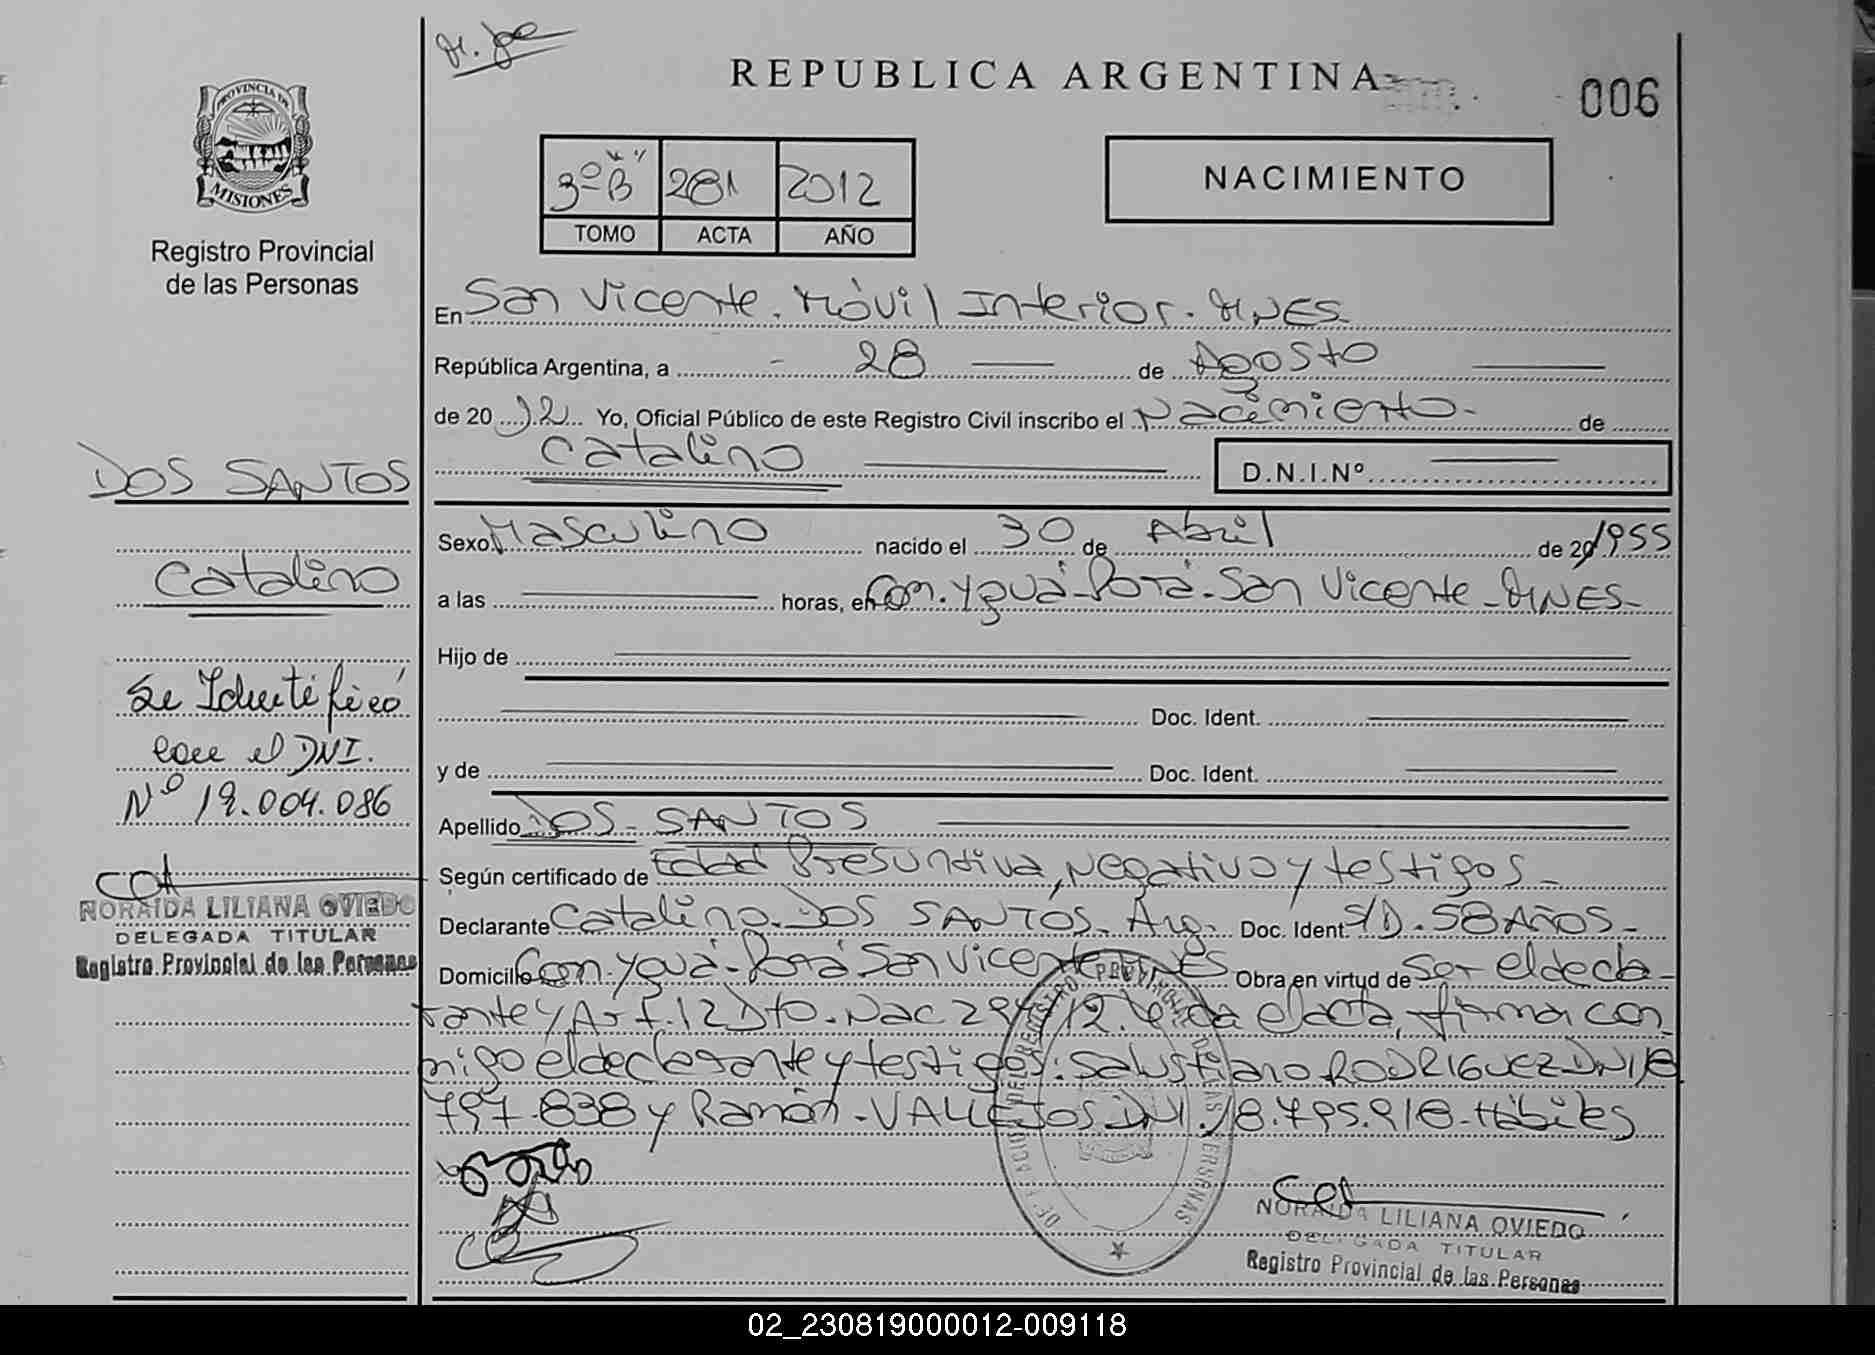 REPUBLICA ARGENTINA
006
PROVINCIA DE
MISIONES
Registro Provincial
de las Personas
3º "B" 281 2012
TOMO ACTA AÑO
NACIMIENTO
En San Vicente. Móvil Interior. MNES.
República Argentina, a - 28 de Agosto
de 2012 Yo, Oficial Público de este Registro Civil inscribo el Nacimiento- de
Catalino D.N.I.Nº
DOS SANTOS
Catalino
Sexo Masculino nacido el 30 de Abril de 20 1955
a las horas, en Con. Yguá-Porá-San Vicente-MNES-
Hijo de
Doc. Ident.
y de Doc. Ident.
Se Identificó
con el DNI.
Nº 19.004.086
Apellido DOS-SANTOS
Según certificado de Edad Presuntiva, Negativo y testigos-
Declarante Catalino-DOS SANTOS. Arg. Doc. Ident S/D. 58 AÑOS-
Domicilio Con. Yguá-Porá San Vicente MNES Obra en virtud de Ser el decla-
rante y Art. 12 Dto. Nac 294/12. Leída el acta, firman con-
migo el declarante y testigos: Salustiano RODRIGUEZ DNI 18
797.838 y Ramón-VALLEJOS DNI. 18.795.918-Hábiles
NORAIDA LILIANA OVIEDO
DELEGADA TITULAR
Registro Provincial de las Personas
NORAIDA LILIANA OVIEDO
DELEGADA TITULAR
Registro Provincial de las Personas
02_230819000012-009118